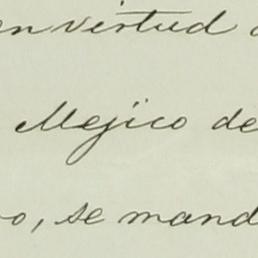 en virtud
Mejico de
o, se mand